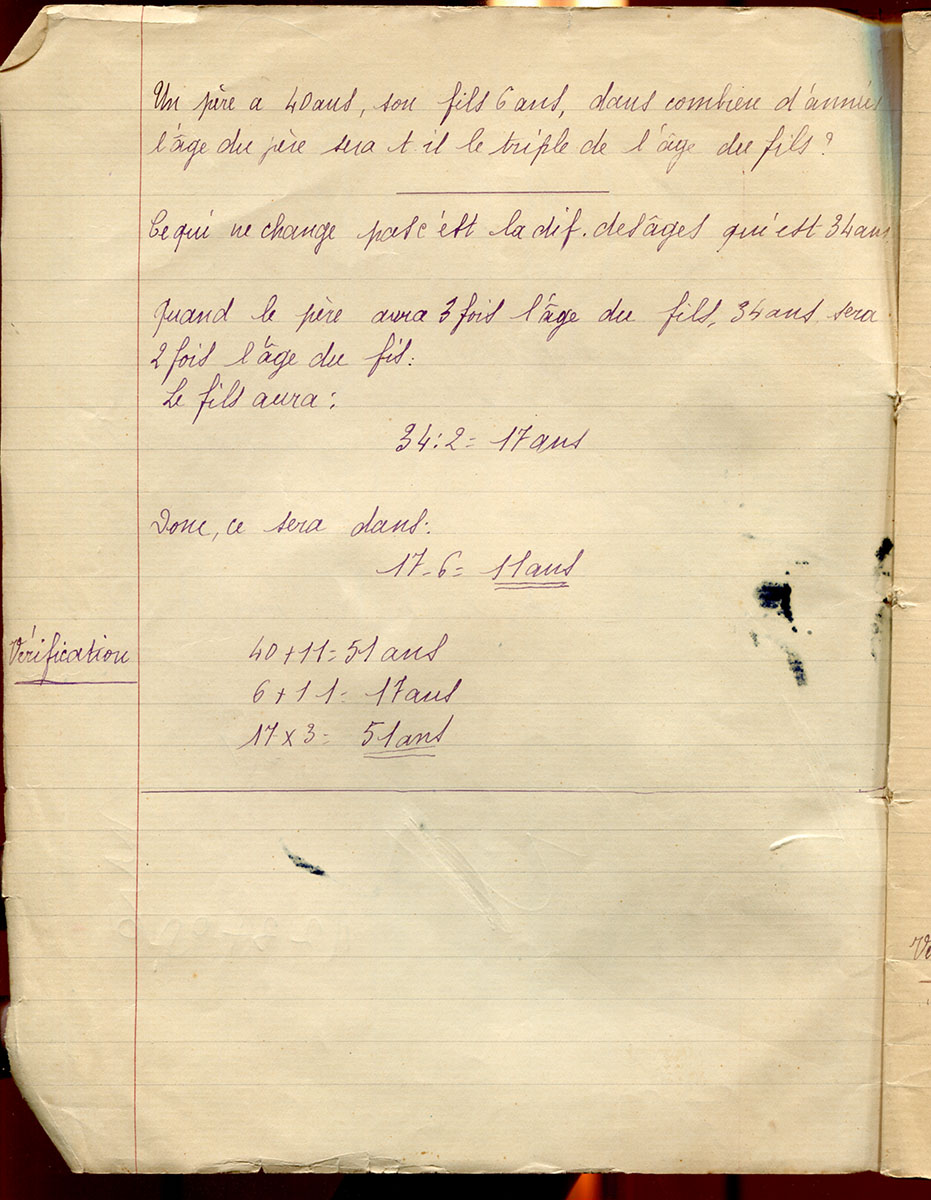 Un père a 40 ans, son fils 6 ans, dans combien d'années
l'âge du père sera t il le triple de l'âge du fils ?
Ce qui ne change pas c'est la dif. des âges qui est 34 ans
Quand le père aura 3 fois l'âge du fils, 34 ans sera
2 fois l'âge du fis.
Le fils aura :
34 : 2 = 17 ans
Donc, ce sera dans :
17 - 6 = 11 ans
Vérification
40 + 11 = 51 ans
6 + 11 = 17 ans
17 x 3 = 51 ans